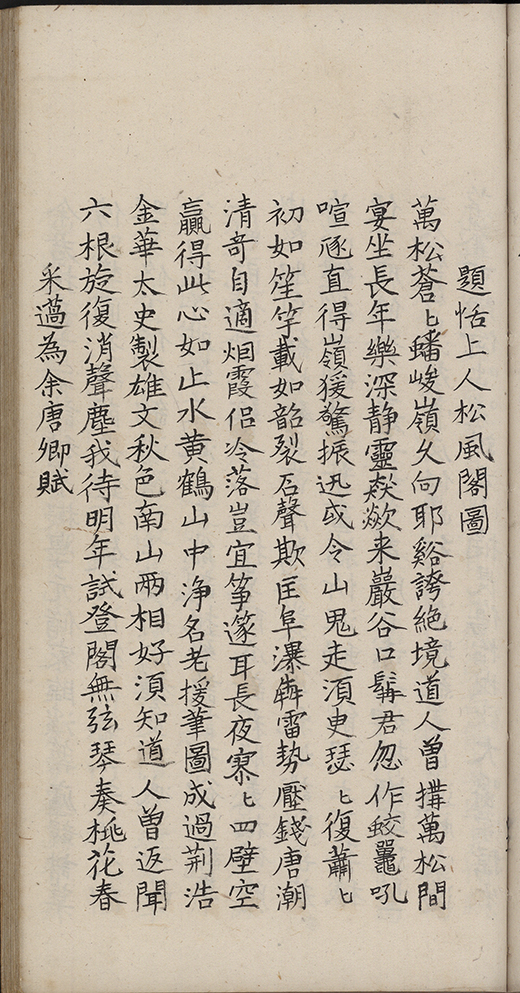 題恬上人松風閣圖
萬松蒼〻蟠峻嶺久向耶谿誇絶境道人曾搆萬松間
宴坐長年樂深静靈猋歘来巖谷口髯君忽作蛟鼉吼
喧豗直得嶺猨驚振迅或令山鬼走須臾瑟〻復蕭〻
初如笙竽載如韶裂石聲欺匡阜瀑犇雷勢壓錢唐潮
清奇自適烟霞侣冷落豈宜箏篴耳長夜寥〻四壁空
贏得此心如止水黄鶴山中浄名老援筆圖成過荆浩
金華太史製雄文秋色南山兩相好須知道人曾返聞
六根旋復消聲塵我待明年試登閣無弦琴奏桃花春
采薖為余唐卿賦